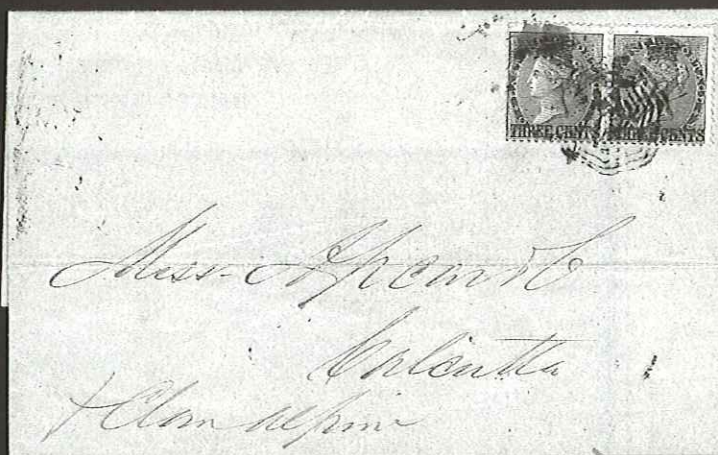 THREE CENTS THREE CENTS
Mess Apcar & C
Calcutta
Clan Alpin